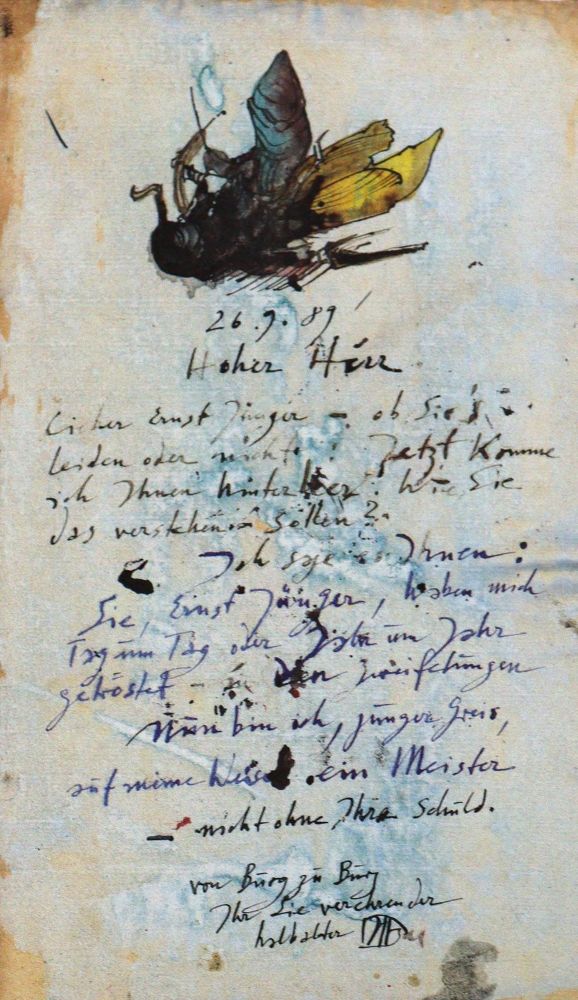 26.9.89
Hoher Herr
Lieber Ernst Jünger – ob Sie's
leiden oder nicht! Jetzt komme
ich Ihnen hinterher! Wie Sie
das verstehen sollen?
Ich sage es Ihnen:
Sie, Ernst Jünger, haben mich
Tag um Tag oder Jahr um Jahr
getröstet – in den Zweifelungen
Nun bin ich, junger Greis,
auf meine Weise ein Meister
– nicht ohne Ihre Schuld.
von Burg zu Burg
Ihr Sie verehrender
halbalter